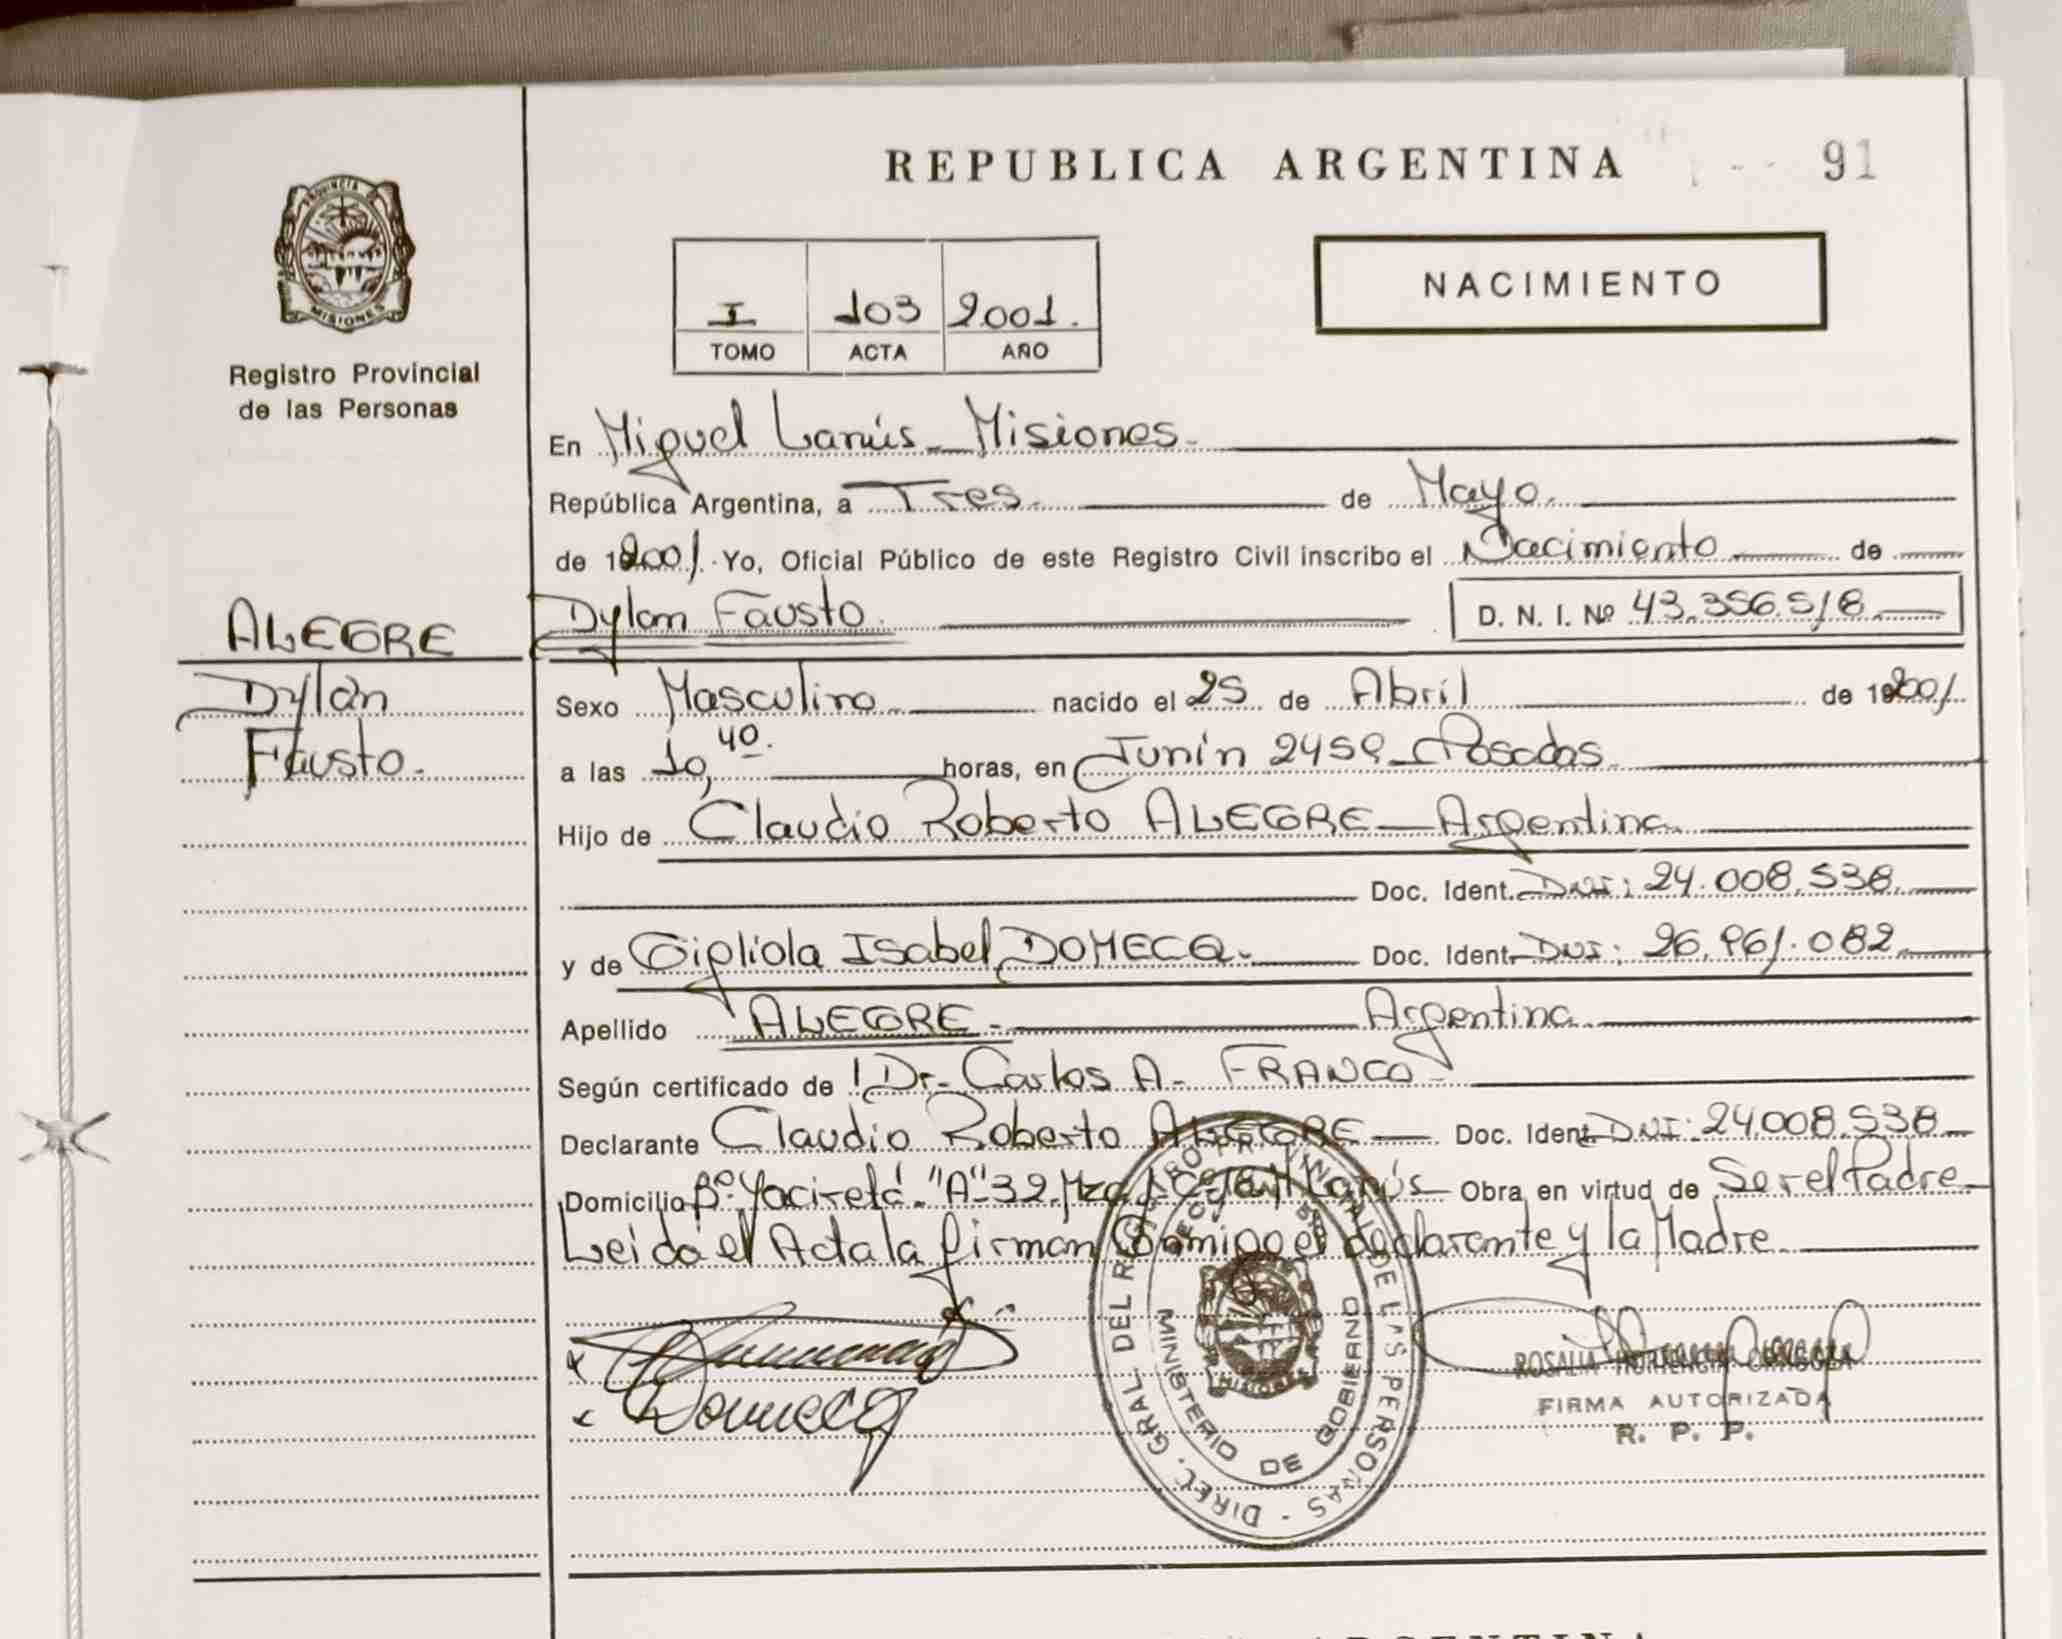 REPUBLICA ARGENTINA
91
PROVINCIA DE
MISIONES
Registro Provincial
de las Personas
I 103 2.001.
TOMO ACTA AÑO
NACIMIENTO
En Miguel Lanús - Misiones.
República Argentina, a Tres. de Mayo.
de 2001. Yo, Oficial Público de este Registro Civil inscribo el Nacimiento de
Dylan Fausto. D. N. I. Nº 43.356.518.
ALEGRE
Dylan
Fausto.
Sexo Masculino nacido el 25 de Abril de 2001.
a las 10,40. horas, en Junín 2459 - Posadas
Hijo de Claudio Roberto ALEGRE - Argentina
Doc. Ident. DNI: 24.008.538
y de Gigliola Isabel DOMECQ. Doc. Ident. DNI: 26.961.082
Apellido ALEGRE. Argentina
Según certificado de Dr. Carlos A. FRANCO
Declarante Claudio Roberto ALEGRE Doc. Ident. DNI: 24.008.538
Domicilio Bº. Yaciretá "A" 32 Mza Lanús Obra en virtud de Ser el Padre
Leida el Acta la firman Conmigo el declarante y la Madre
Domecq
DIREC. GRAL. DEL REGISTRO PROVINCIAL DE LAS PERSONAS
MINISTERIO DE GOBIERNO
MISIONES
ROSALIA HORTENCIA
FIRMA AUTORIZADA
R. P. P.